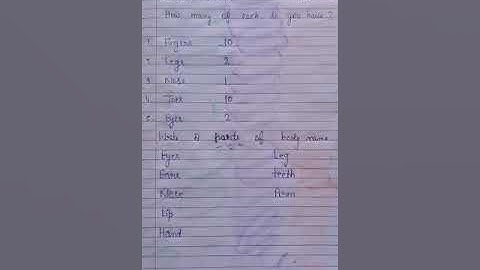 How many of each do you have?
1. Fingers 10
2. Legs 2
3. Nose 1
4. Toes 10
5. Eyes 2
Write 8 parts of body name
Eyes Leg
Ears Teeth
Nose Arm
Lip
Hand